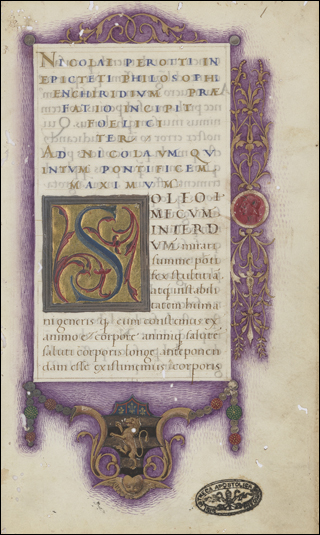 NICOLAI PEROTTI IN
EPICTETI PHILOSOPHI
ENCHIRIDIVM PRÆ
FATIO INCIPIT
FOELICI
TER.
AD NICOLAVM QV
INTVM PONTIFICEM
MAXIMVM
SOLEO I
MECVM
INTERD
VM mirari
summe pōti
fex stultitiā
atq; instabili
tatem huma
ni generis q̄ cum constemus ex
animo & corpore animiq; salutē
saluti corporis longe anteponen
dam esse existimemus corporis
APOSTOLICA